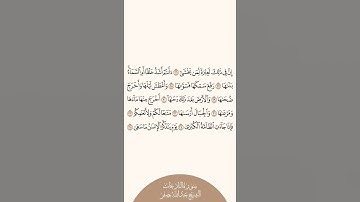 إِنَّ فِي ذَٰلِكَ لَعِبْرَةً لِّمَن يَخْشَىٰ ۝ ءَأَنتُمْ أَشَدُّ خَلْقًا أَمِ السَّمَاءُ
بَنَاهَا ۝ رَفَعَ سَمْكَهَا فَسَوَّاهَا ۝ وَأَغْطَشَ لَيْلَهَا وَأَخْرَجَ
ضُحَاهَا ۝ وَالْأَرْضَ بَعْدَ ذَٰلِكَ دَحَاهَا ۝ أَخْرَجَ مِنْهَا مَاءَهَا
وَمَرْعَاهَا ۝ وَالْجِبَالَ أَرْسَاهَا ۝ مَتَاعًا لَّكُمْ وَلِأَنْعَامِكُمْ ۝
فَإِذَا جَاءَتِ الطَّامَّةُ الْكُبْرَىٰ ۝ يَوْمَ يَتَذَكَّرُ الْإِنسَانُ مَا سَعَىٰ ۝
سورة النازعات